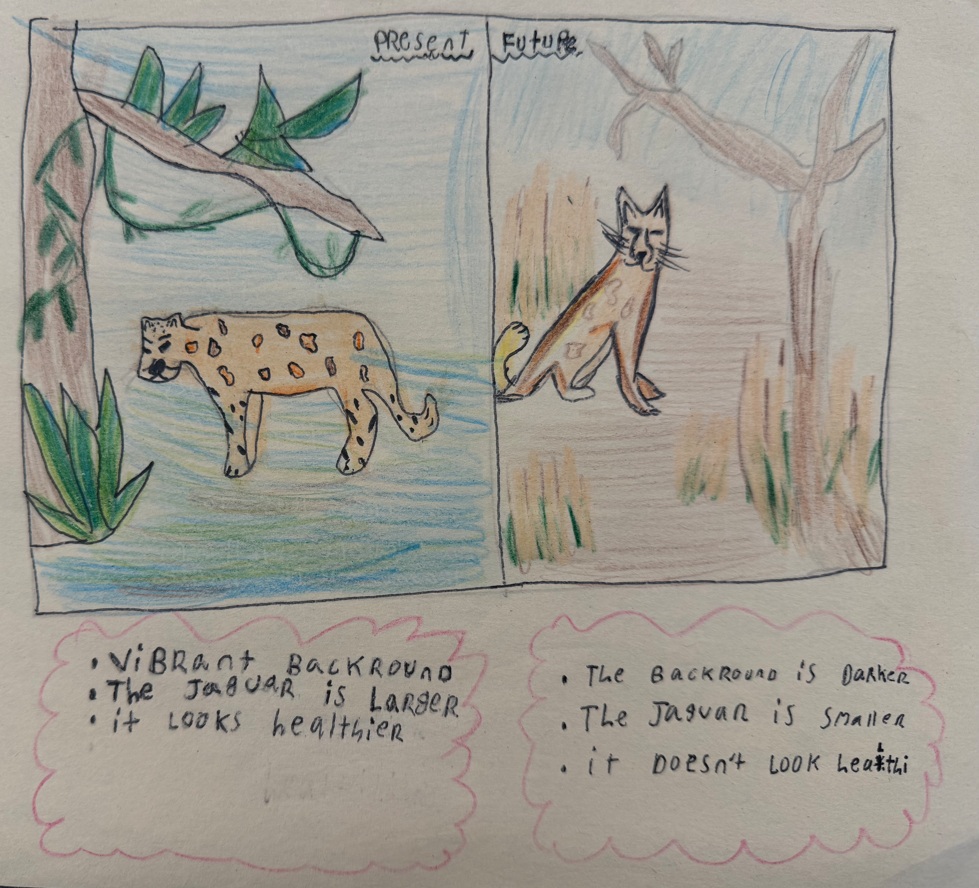 Present
Future
• ViBRant BackRound
• The JaguaR is LaRgeR
• it Looks healthieR
• The BackRound is DaRkeR
• The Jaguar is Smaller
• it Doesn't Look healthi